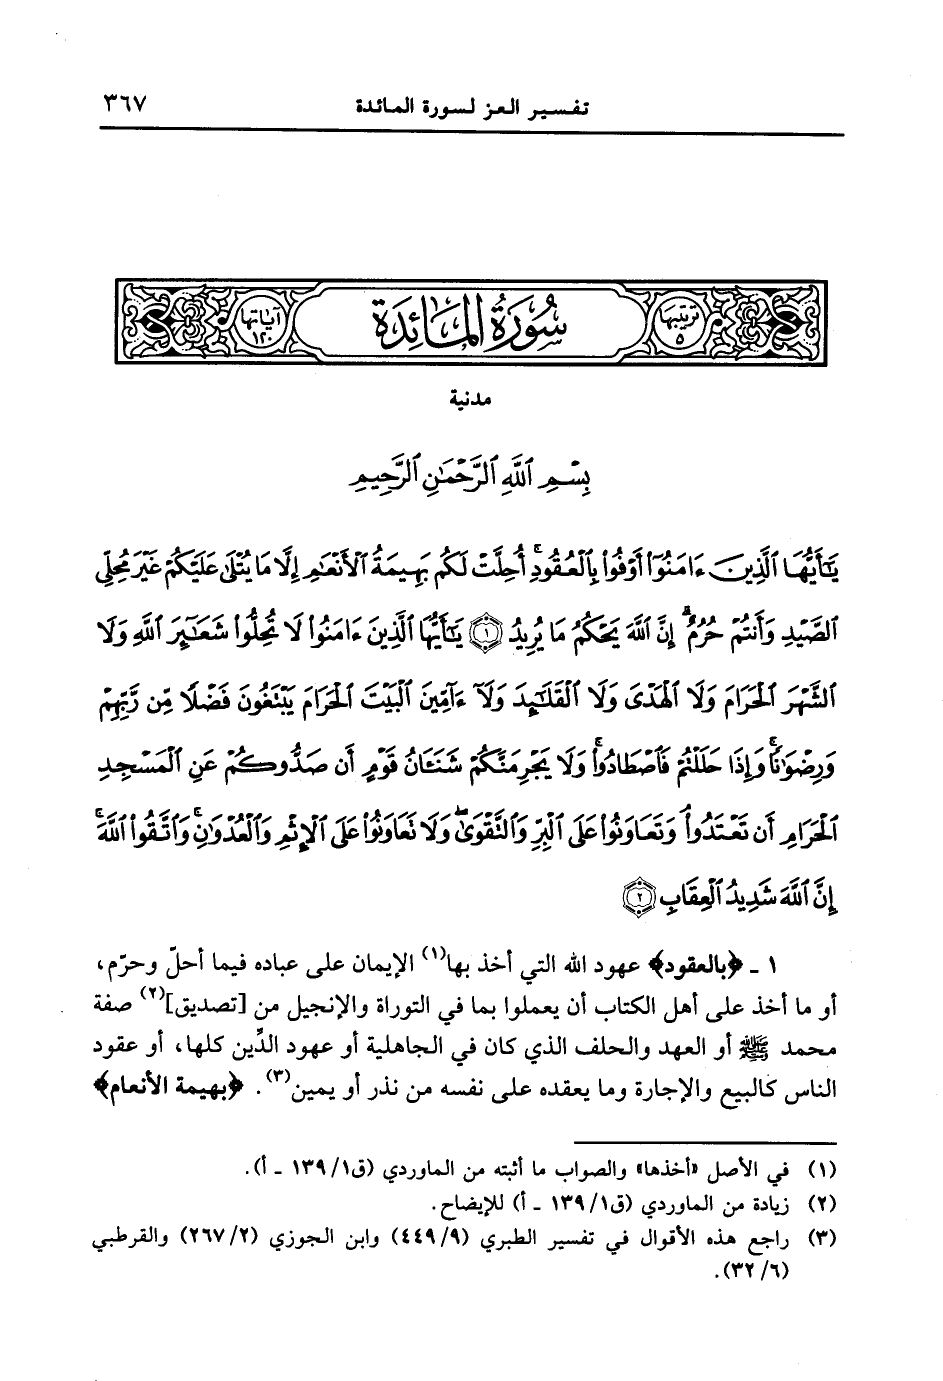 تفسير العز لسورة المائدة ٣٦٧
ترتيبها ٥ سُورَةُ المَائِدَة آياتها ١٢٠
مدنية
بِسْمِ ٱللَّهِ ٱلرَّحْمَٰنِ ٱلرَّحِيمِ
يَٰٓأَيُّهَا ٱلَّذِينَ ءَامَنُوٓا۟ أَوْفُوا۟ بِٱلْعُقُودِ ۚ أُحِلَّتْ لَكُم بَهِيمَةُ ٱلْأَنْعَٰمِ إِلَّا مَا يُتْلَىٰ عَلَيْكُمْ غَيْرَ مُحِلِّى
ٱلصَّيْدِ وَأَنتُمْ حُرُمٌ ۗ إِنَّ ٱللَّهَ يَحْكُمُ مَا يُرِيدُ ١ يَٰٓأَيُّهَا ٱلَّذِينَ ءَامَنُوا۟ لَا تُحِلُّوا۟ شَعَٰٓئِرَ ٱللَّهِ وَلَا
ٱلشَّهْرَ ٱلْحَرَامَ وَلَا ٱلْهَدْىَ وَلَا ٱلْقَلَٰٓئِدَ وَلَآ ءَآمِّينَ ٱلْبَيْتَ ٱلْحَرَامَ يَبْتَغُونَ فَضْلًا مِّن رَّبِّهِمْ
وَرِضْوَٰنًا ۚ وَإِذَا حَلَلْتُمْ فَٱصْطَادُوا۟ ۚ وَلَا يَجْرِمَنَّكُمْ شَنَـَٔانُ قَوْمٍ أَن صَدُّوكُمْ عَنِ ٱلْمَسْجِدِ
ٱلْحَرَامِ أَن تَعْتَدُوا۟ ۘ وَتَعَاوَنُوا۟ عَلَى ٱلْبِرِّ وَٱلتَّقْوَىٰ ۖ وَلَا تَعَاوَنُوا۟ عَلَى ٱلْإِثْمِ وَٱلْعُدْوَٰنِ ۚ وَٱتَّقُوا۟ ٱللَّهَ ۖ
إِنَّ ٱللَّهَ شَدِيدُ ٱلْعِقَابِ ٢
١ ـ ﴿بالعقود﴾ عهود الله التي أخذ بها(١) الإيمان على عباده فيما أحلّ وحرّم،
أو ما أخذ على أهل الكتاب أن يعملوا بما في التوراة والإنجيل من [تصديق](٢) صفة
محمد ﷺ أو العهد والحلف الذي كان في الجاهلية أو عهود الدِّين كلها، أو عقود
الناس كالبيع والإجارة وما يعقده على نفسه من نذر أو يمين(٣). ﴿بهيمة الأنعام﴾
(١) في الأصل «أخذها» والصواب ما أثبته من الماوردي (ق١/ ١٣٩ ـ أ).
(٢) زيادة من الماوردي (ق١/ ١٣٩ ـ أ) للإيضاح.
(٣) راجع هذه الأقوال في تفسير الطبري (٩/ ٤٤٩) وابن الجوزي (٢/ ٢٦٧) والقرطبي
(٦/ ٣٢).